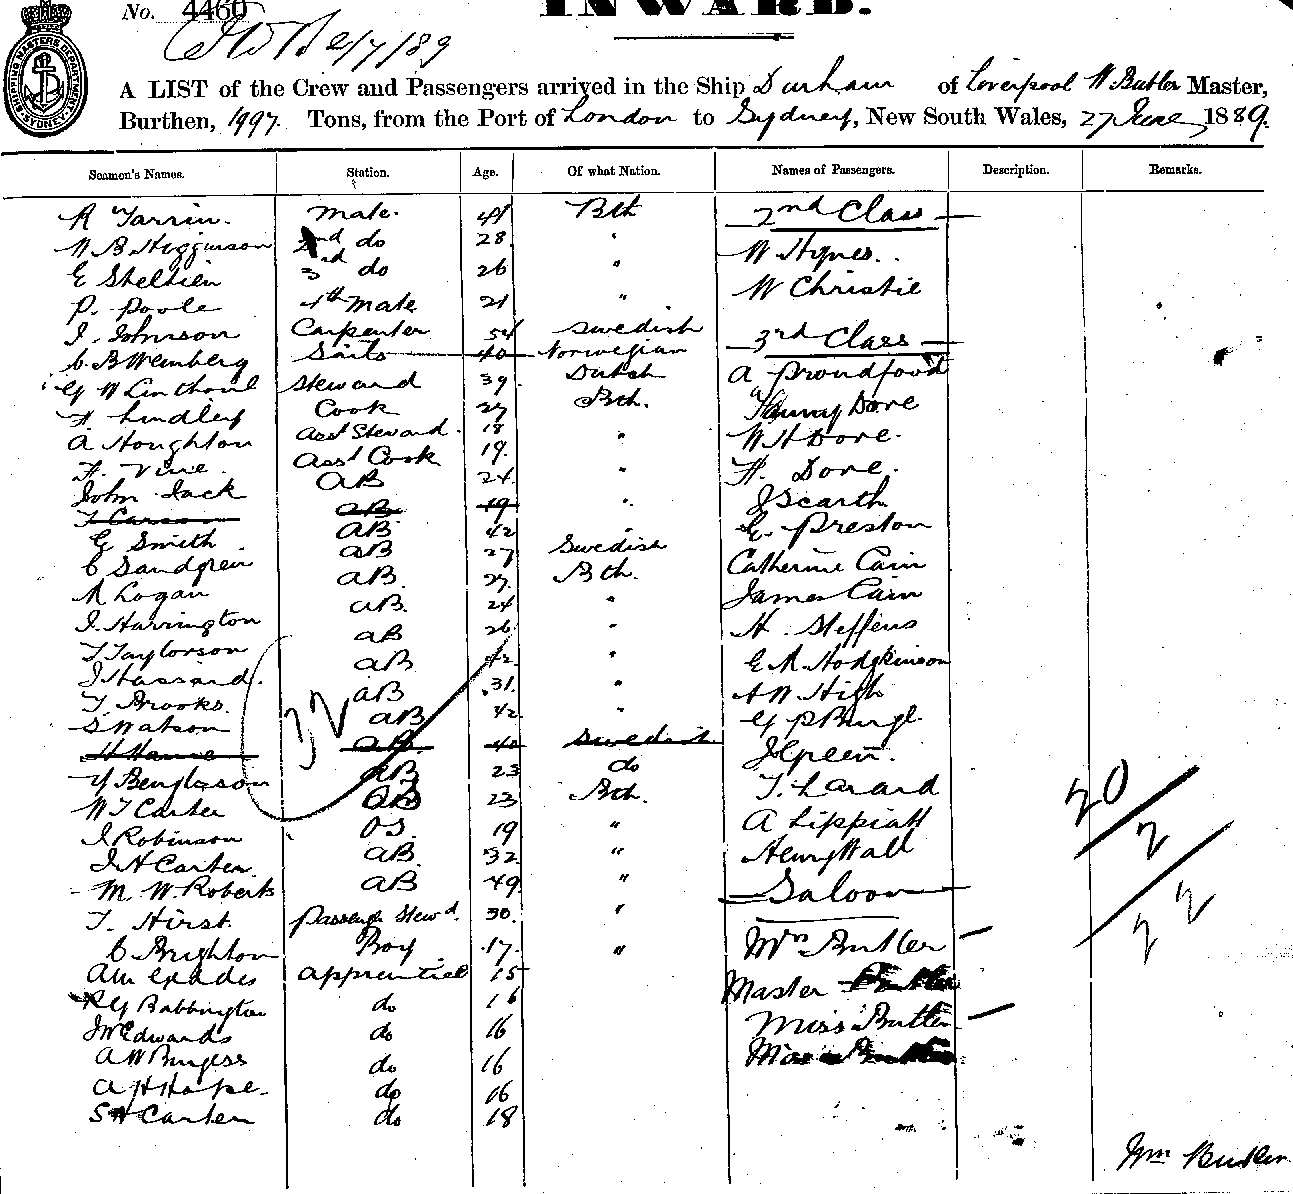 No. 4460 INWARD.
2/7/89
SHIPPING MASTERS DEPARTMENT SYDNEY
A LIST of the Crew and Passengers arrived in the Ship Durham of Liverpool W. Butler Master,
Burthen, 1997. Tons, from the Port of London to Sydney, New South Wales, 27 June 1889.
Seamen's Names. Station. Age. Of what Nation. Names of Passengers. Description. Remarks.
R Tarrin. Mate. 41 Bth 2nd Class
W B Higginson 2nd do 28 " W Hynes.
E 3rd do 26 " W Christie
P. Poole 4th Mate 21 "
J. Johnson Carpenter 54 Swedish 3rd Class
C. B Weinberg Sails 40 Norwegian
G W Steward 39 Dutch A Proudfoot
F. Lindley Cook 27 Bth. Dore
A Houghton Asst Steward 18 " W H Dore.
F. Vine Asst Cook 19. " H. Dore.
John Jack AB 24 " J Scarth
AB 19 " E. Preston
G Smith AB 42
C Sandgren AB 27 Swedish Catherine Cain
R Logan AB. 27. Bth. James Cain
J. Harrington AB. 24 " H. Steffens
T Taylorson AB 26 " E R Hodgkinson
J Hassard. AB 42 "
T. Brooks. AB 31. " A W High
S Watson AB 42 " G P
AB 40 Swedish J Green.
AB 23 do T. Larard
W T Carter AB 23 Bth. A Lippiatt
J Robinson OS. 19 " Henry Wall
J H Carter. AB. 32 "
M. W. Roberts AB 49 " Saloon
T. Hirst. Passengr Stewd. 30. "
C Brighton Boy 17. " Mrs Butler
Apprentice 15 Master Butler
R G Babbington do 16 Miss Butler
J W Edwards do 16
A W Burgess do 16
A H Hope. do 16
S H Carter do 18
32
20
2
22
Wm Butler